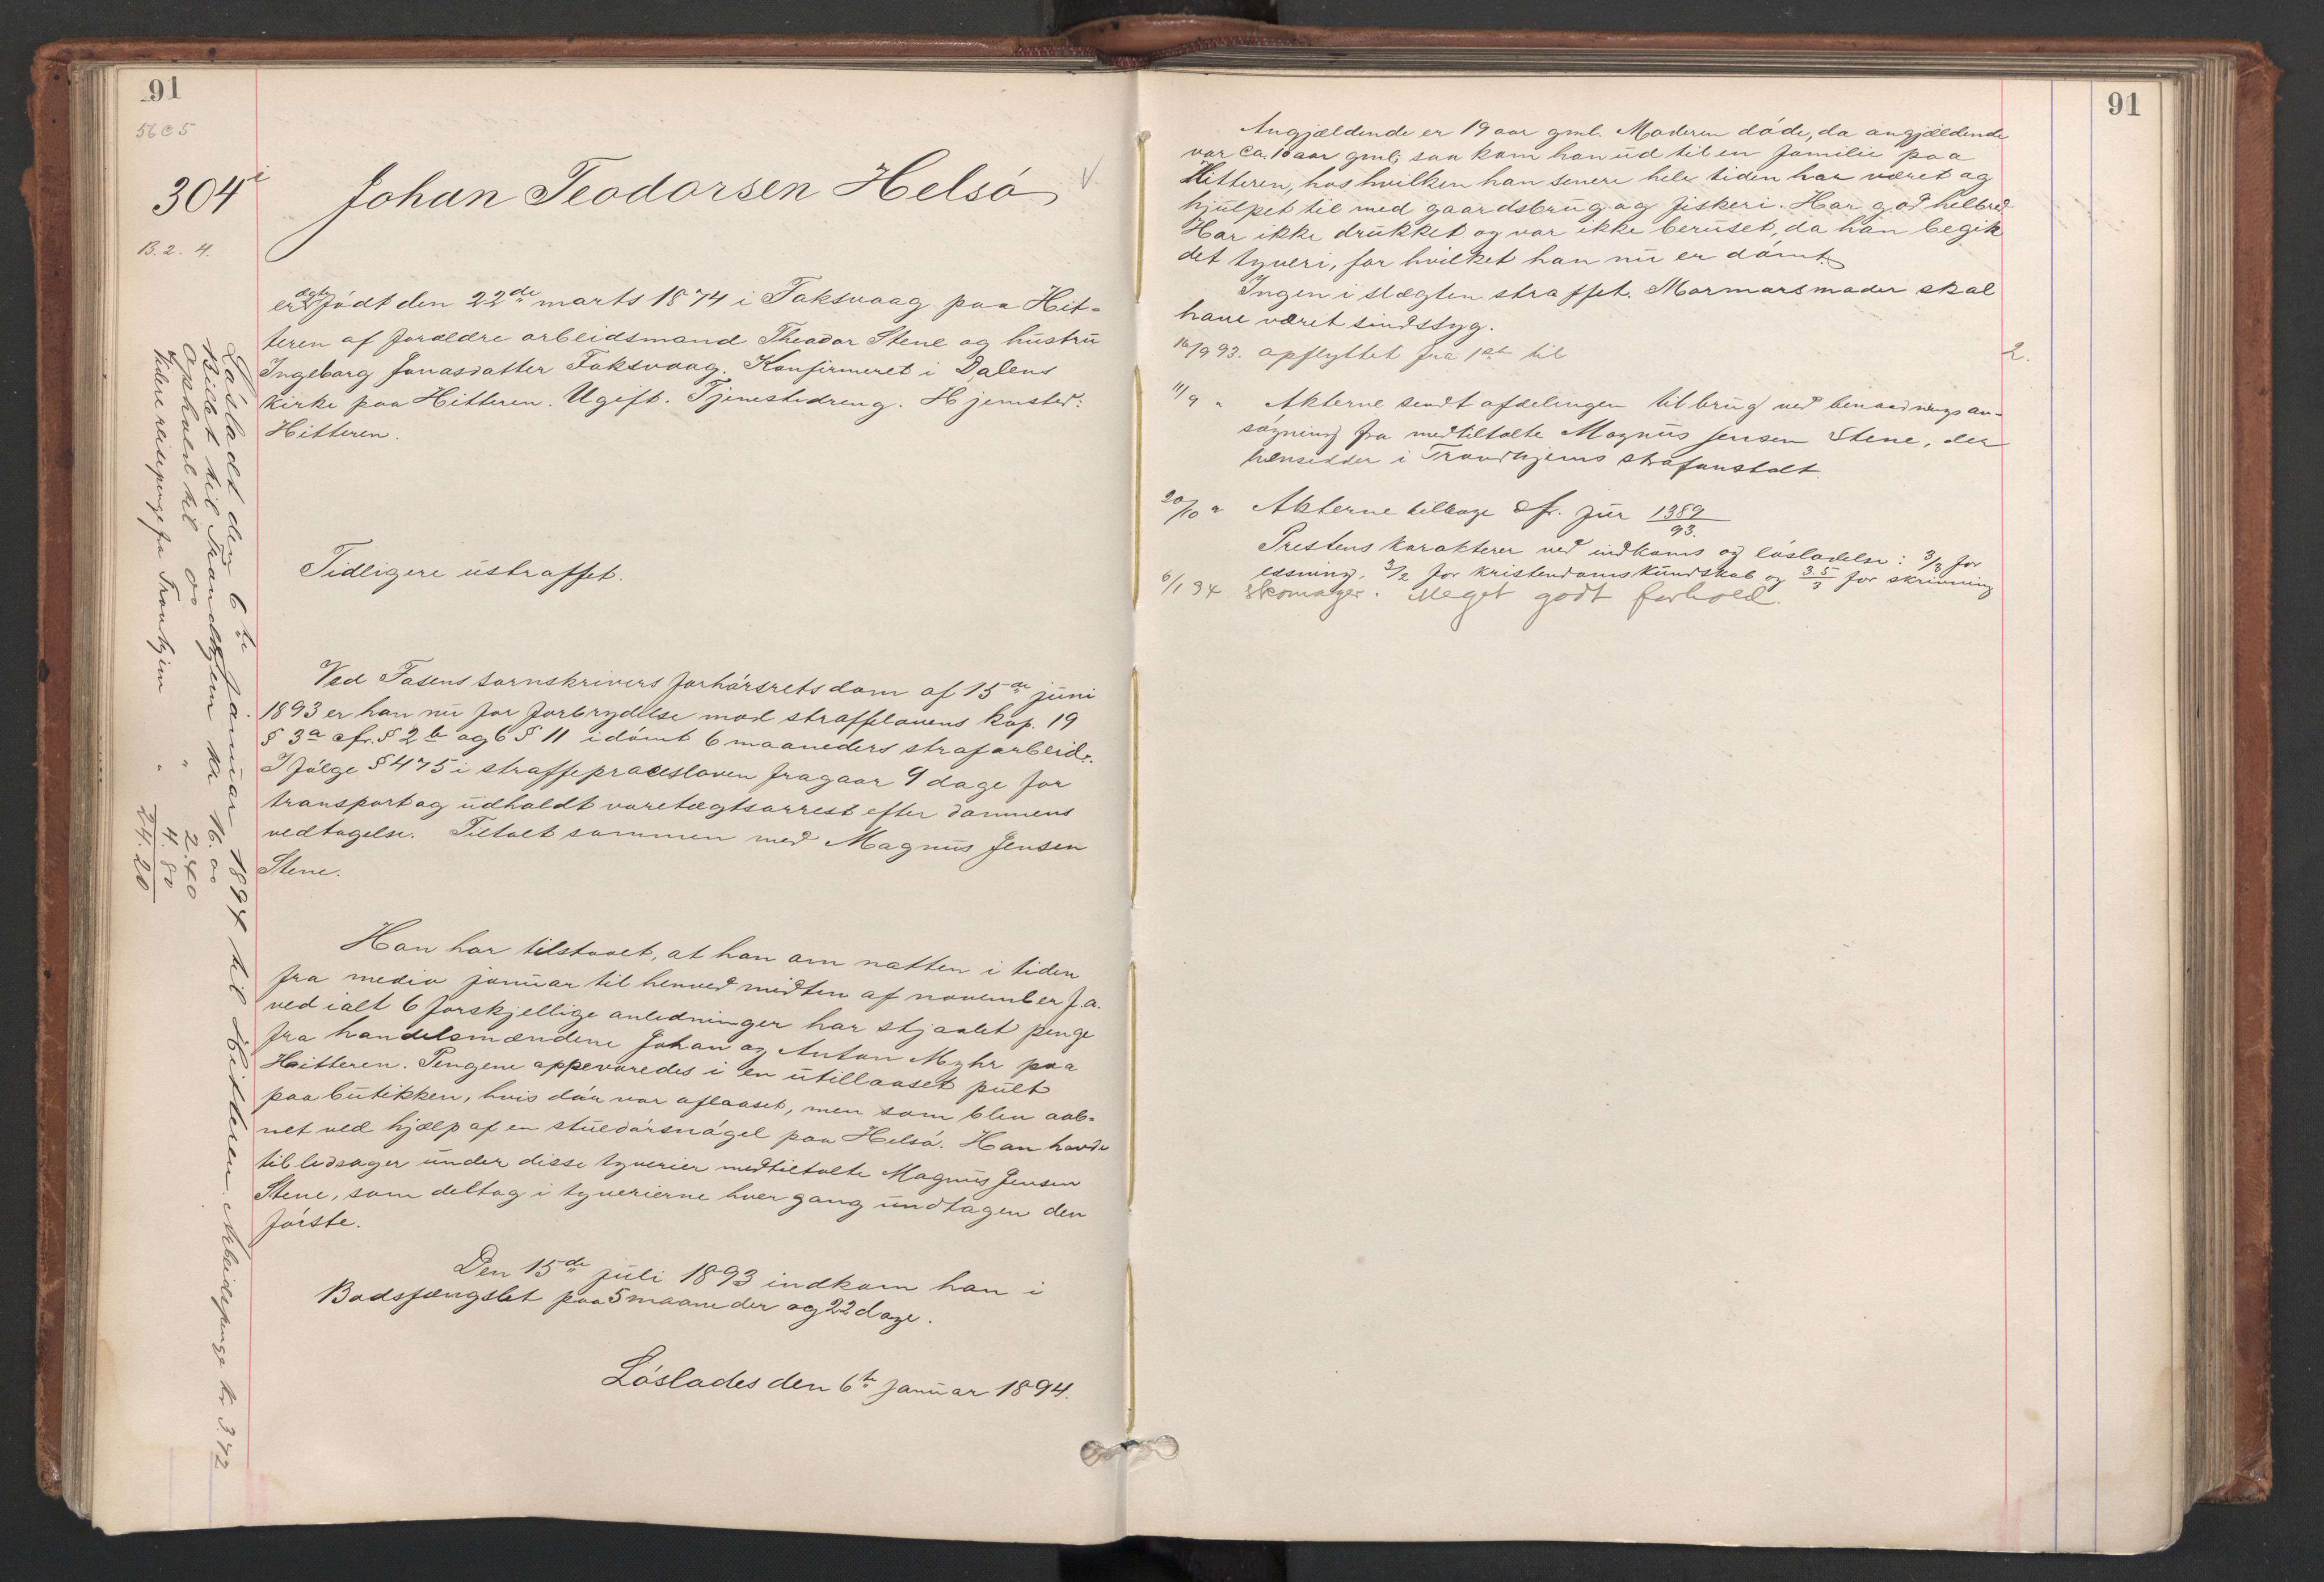 91
56 C 5
304
Johan Teodorsen Helsö
B. 2. 4.
er ægte födt den 22de marts 1874 i Faksvaag paa Hit-
teren af foræeldre arbeidsmand Theodor Stene og hustru
Ingeborg Jonasdatter Faksvaag. Konfirmeret i Dalens
kirke paa Hitteren. Ugift. Tjenestedreng. Hjemsted:
Hitteren.
Tidligere ustraffet.
Ved Fosens sornskrivers forhörsrets dom af 15de juni
1893 er han nu for forbrydelse mod straffelovens kap. 19
§ 3a cfr. § 2 b og 6 § 11 idömt 6 maaneders strafarbeide.
I fölge § 475 i straffeprocesloven fragaar 9 dage for
transport og udholdt varetægtsarrest efter dommens
vedtagelse. Tiltalt sammen med Magnus Jensen
Stene.
Han har tilstaaet, at han om natten i tiden
fra medio januar til henved midten af november f.a.
ved ialt 6 forskjellige anledninger har stjaalet penge
fra handelsmændene Johan og Anton Myhr paa
Hitteren. Pengene oppevaredes i en utillaaset pult
paa butikken, hvis dör var aflaaset, men som blev aab-
net ved hjælp af en stuedörsnögel paa Helsö. Han havde
til ledsager under disse tyverier medtiltalte Magnus Jensen
Stene, som deltog i tyverierne hver gang undtagen den
förste.
Den 15de juli 1893 indkom han i
Bodsfængslet paa 5 maaneder og 22 dage.
Löslades den 6te Januar 1894.
Lösladt den 6te Januar 1894 til Hitteren. Arbeidspenge kr 3.72
Billet til Trondhjem kr 16.00
Ophold til do " 2.40
Videre reisepenge fra Trondhjem " 4.80
24.20
91
Angjældende er 19 aar gml. Moderen döde, da angjældende
var ca. 10 aar gml; saa kom han ud til en familie paa
Hitteren, hos hvilken han senere hele tiden har været og
hjulpet til med gaardsbrug og fiskeri. Har god helbred.
Har ikke drukket og var ikke beruset, da han begik
det tyveri, for hvilket han nu er dömt.
Ingen i slægten straffet. Mormors moder skal
have været sindssyg.
16/9 93. opflyttet fra 1st til 2.
11/9 " Akterne sendt afdelingen til brug ved benaadningsan-
sögning fra medtiltalte Magnus Jensen Stene, der
hensidder i Trondhjems strafanstalt.
20/10 " Akterne tilbage cfr. jur 1389/93.
Prestens karakterer ved indkomst og lösladelse: 3/3 for
læsning, 3/2 for kristendomskundskab og 3.5/3 for skrivning
6/1 94 Skomager. Meget godt forhold.